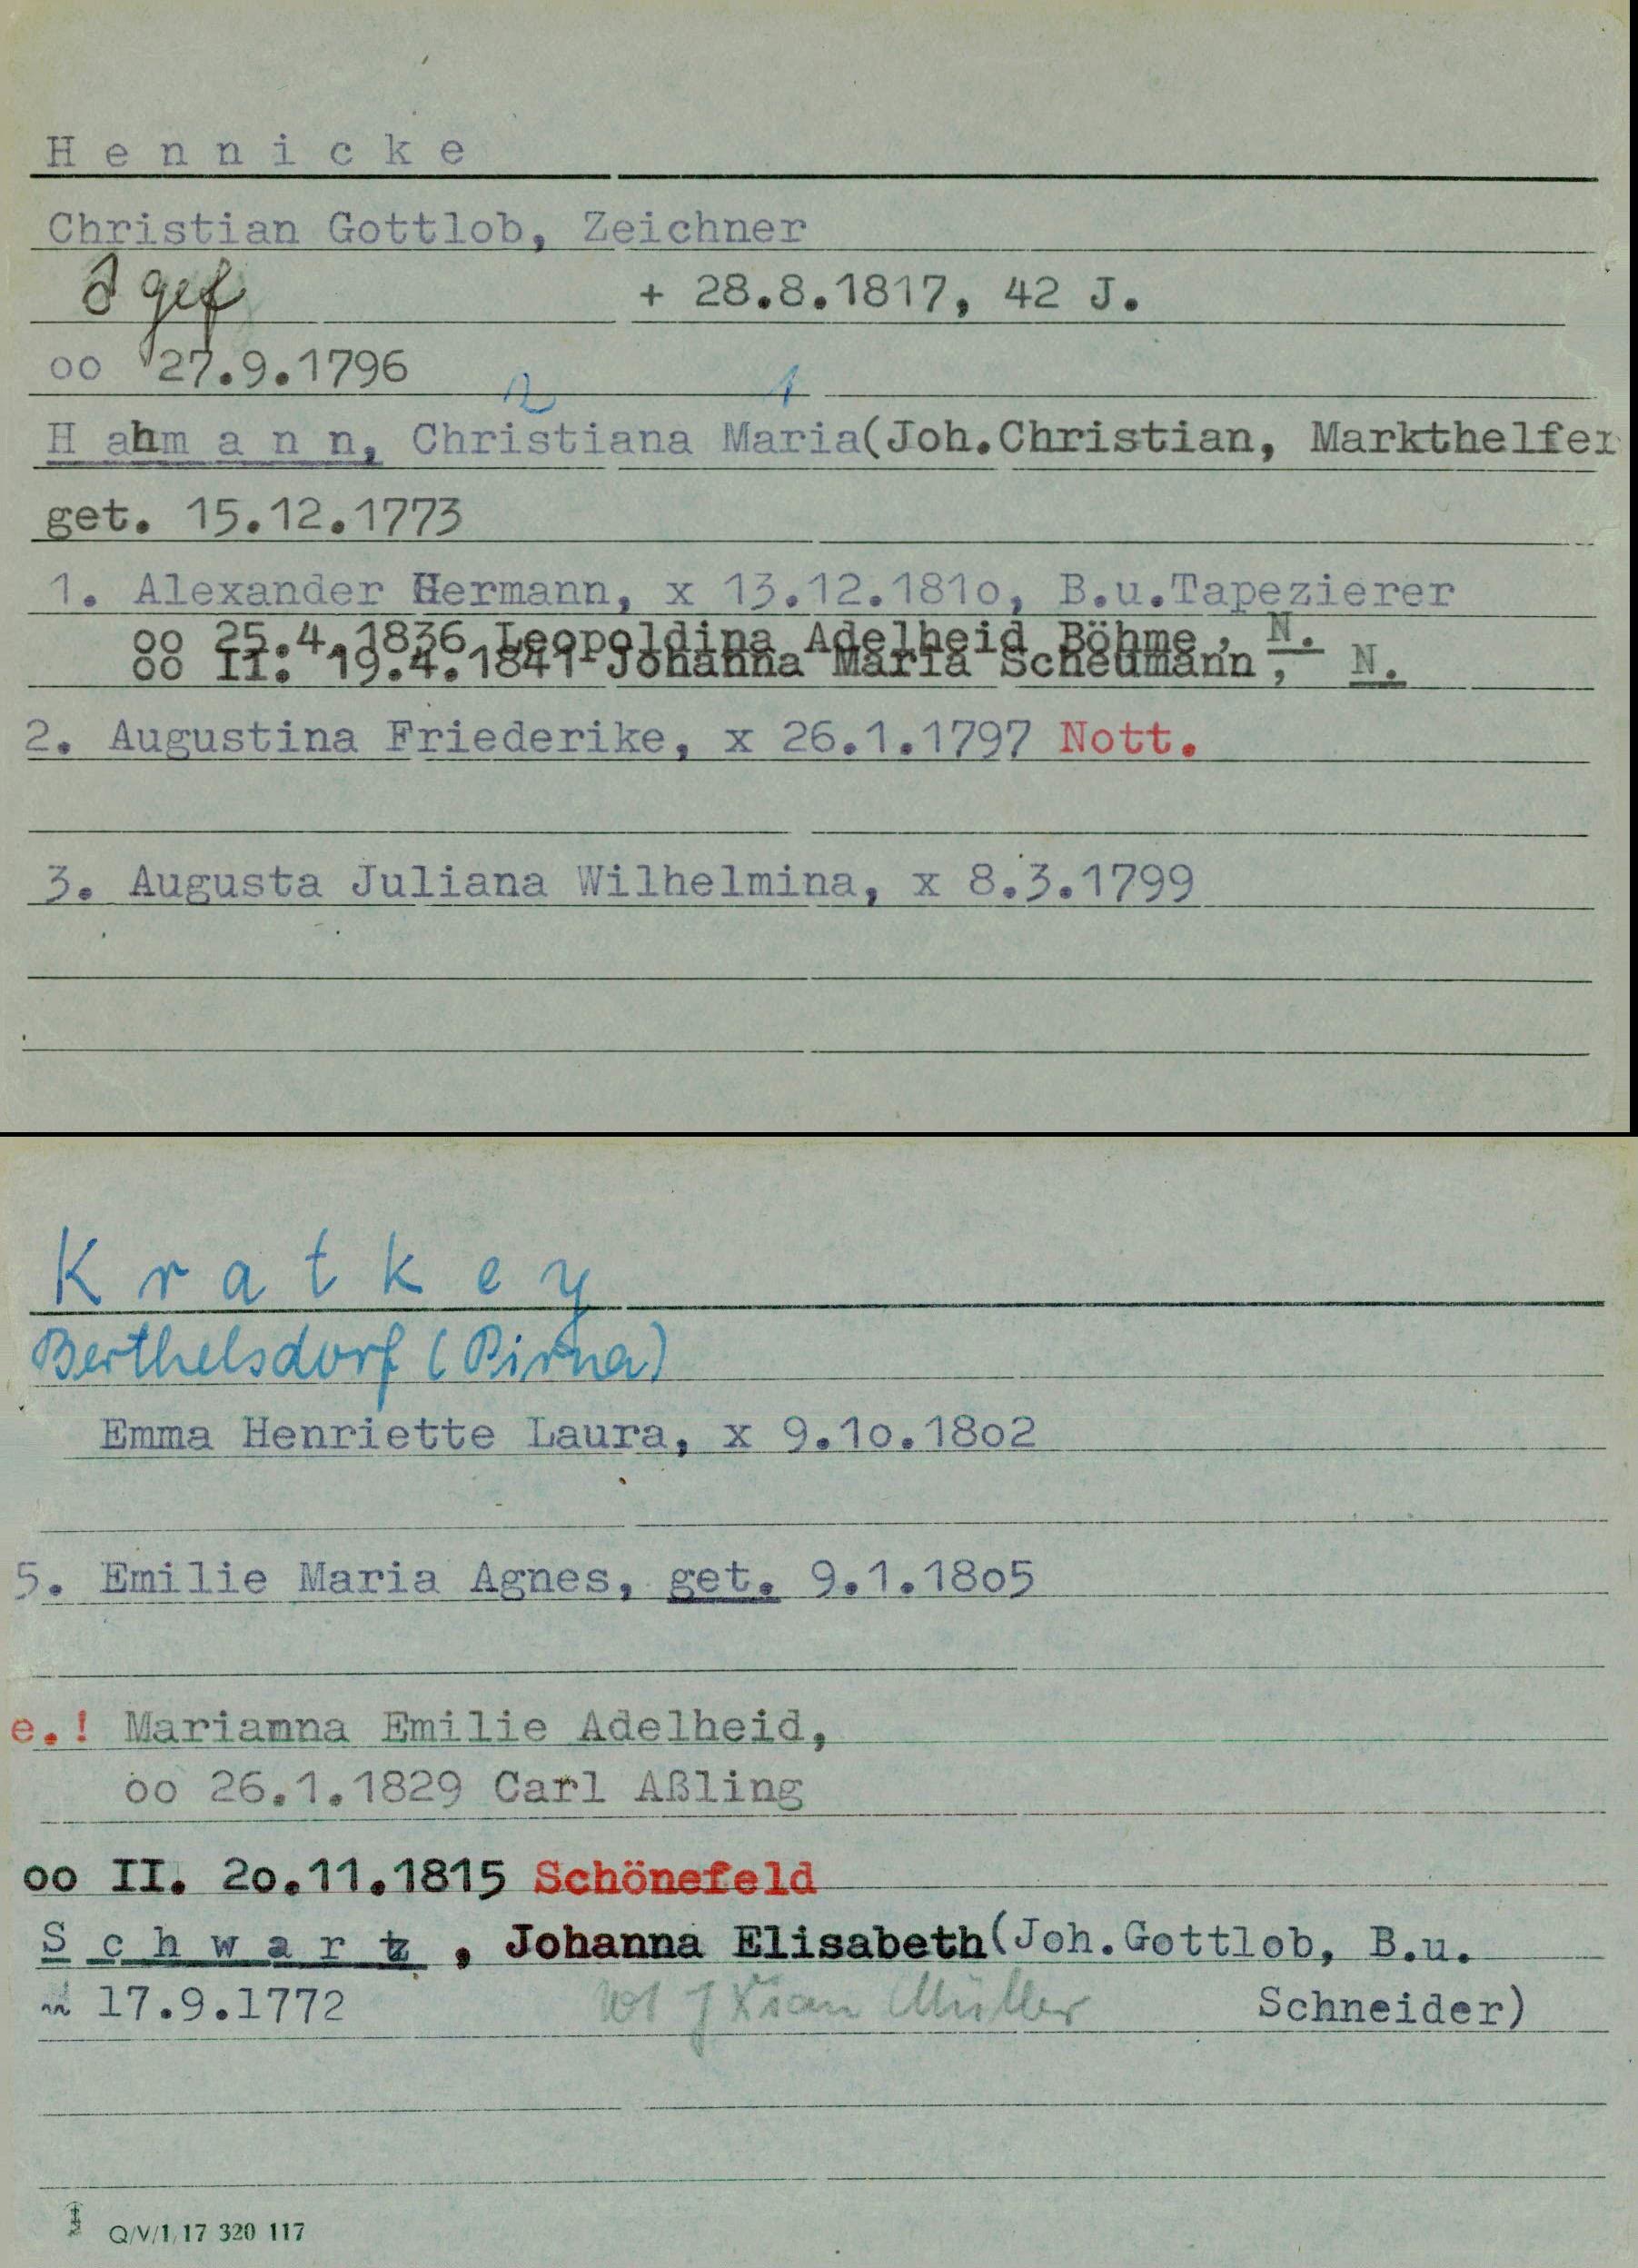 H e n n i c k e
Christian Gottlob, Zeichner
♂ gef + 28.8.1817, 42 J.
oo 27.9.1796
2 1
H a h m a n n, Christiana Maria(Joh.Christian, Markthelfer
get. 15.12.1773
1. Alexander Hermann, x 13.12.181o, B.u.Tapezierer
oo 25.4.1836 Leopoldina Adelheid Böhme, N.
oo II. 19.4.1841 Johanna Maria Scheumann, N.
2. Augustina Friederike, x 26.1.1797 Nott.
3. Augusta Juliana Wilhelmina, x 8.3.1799
K r a t k e y
Berthelsdorf (Pirna)
Emma Henriette Laura, x 9.1o.18o2
5. Emilie Maria Agnes, get. 9.1.18o5
e.! Marianna Emilie Adelheid,
oo 26.1.1829 Carl Aßling
oo II. 2o.11.1815 Schönefeld
S c h w a r z , Johanna Elisabeth(Joh.Gottlob, B.u.
~ 17.9.1772 Müller Schneider)
Q/V/1,17 320 117